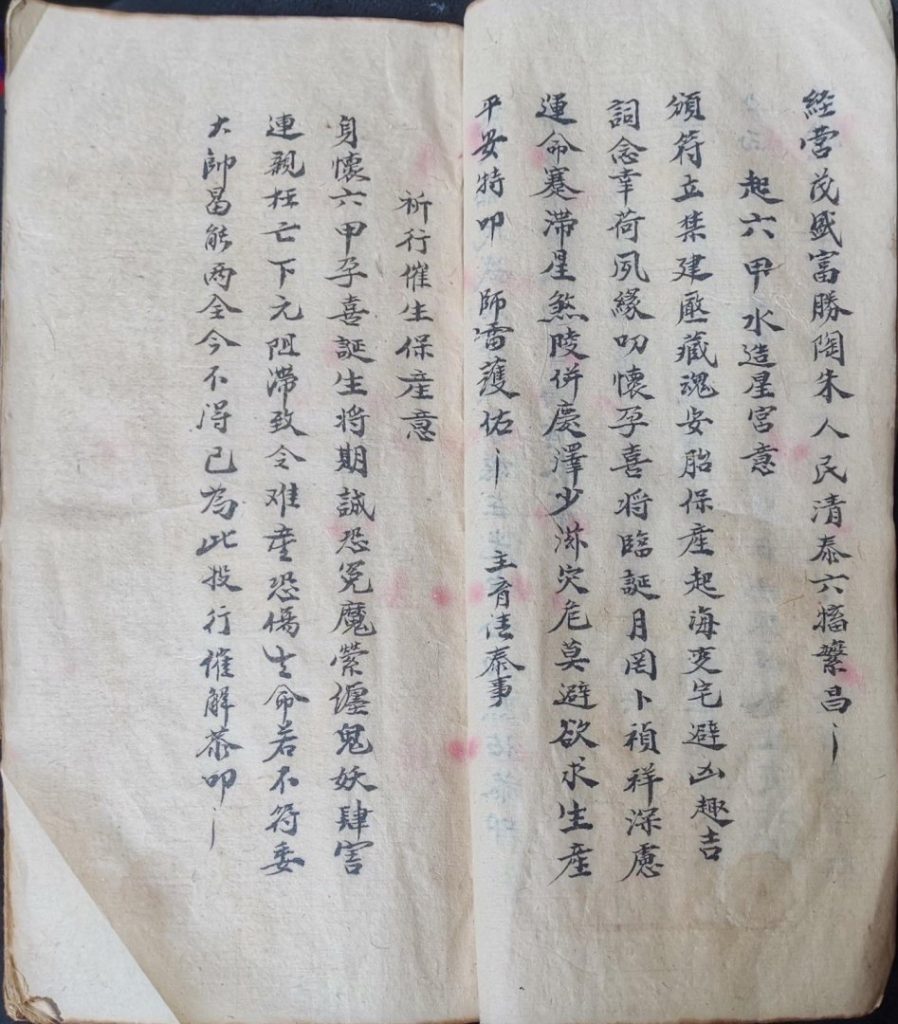 经营茂盛富勝陶朱人民清泰六畜繁昌
起六甲水造星宫意
頒符立禁建壓藏魂安胎保産起海变宅避凶趣吉
詞念幸荷夙緣叨懷孕喜将臨誕月罔卜禎祥深慮
運命蹇滯星煞陵併慶澤少滋灾危莫避欲求生産
平安特叩 師雷護佑 主育清泰事
祈行催生保産意
身懷六甲孕喜誕生将期誠恐冤魔縈纏鬼妖肆害
連親枉亡下元阻滯致令难産恐傷生命若不符委
大帥曷能两全今不得已為此投行催解恭叩